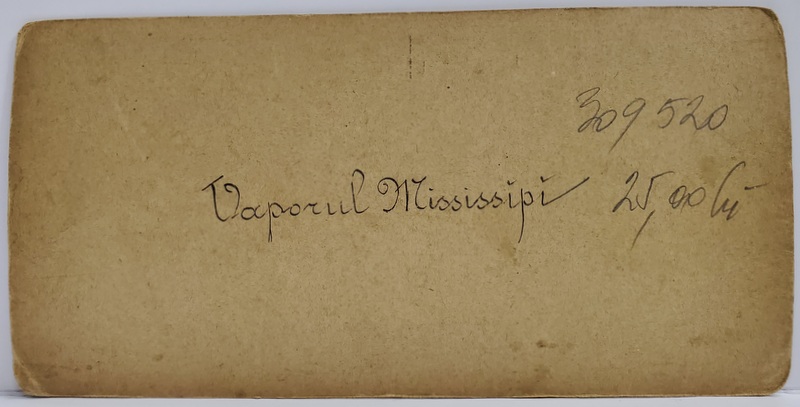 309520
Vaporul Mississipi
25,00 lei